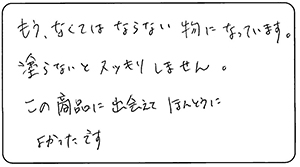 もう、なくてはならない物になっています。
塗らないとスッキリしません。
この商品に出会えてほんとうに
よかったです